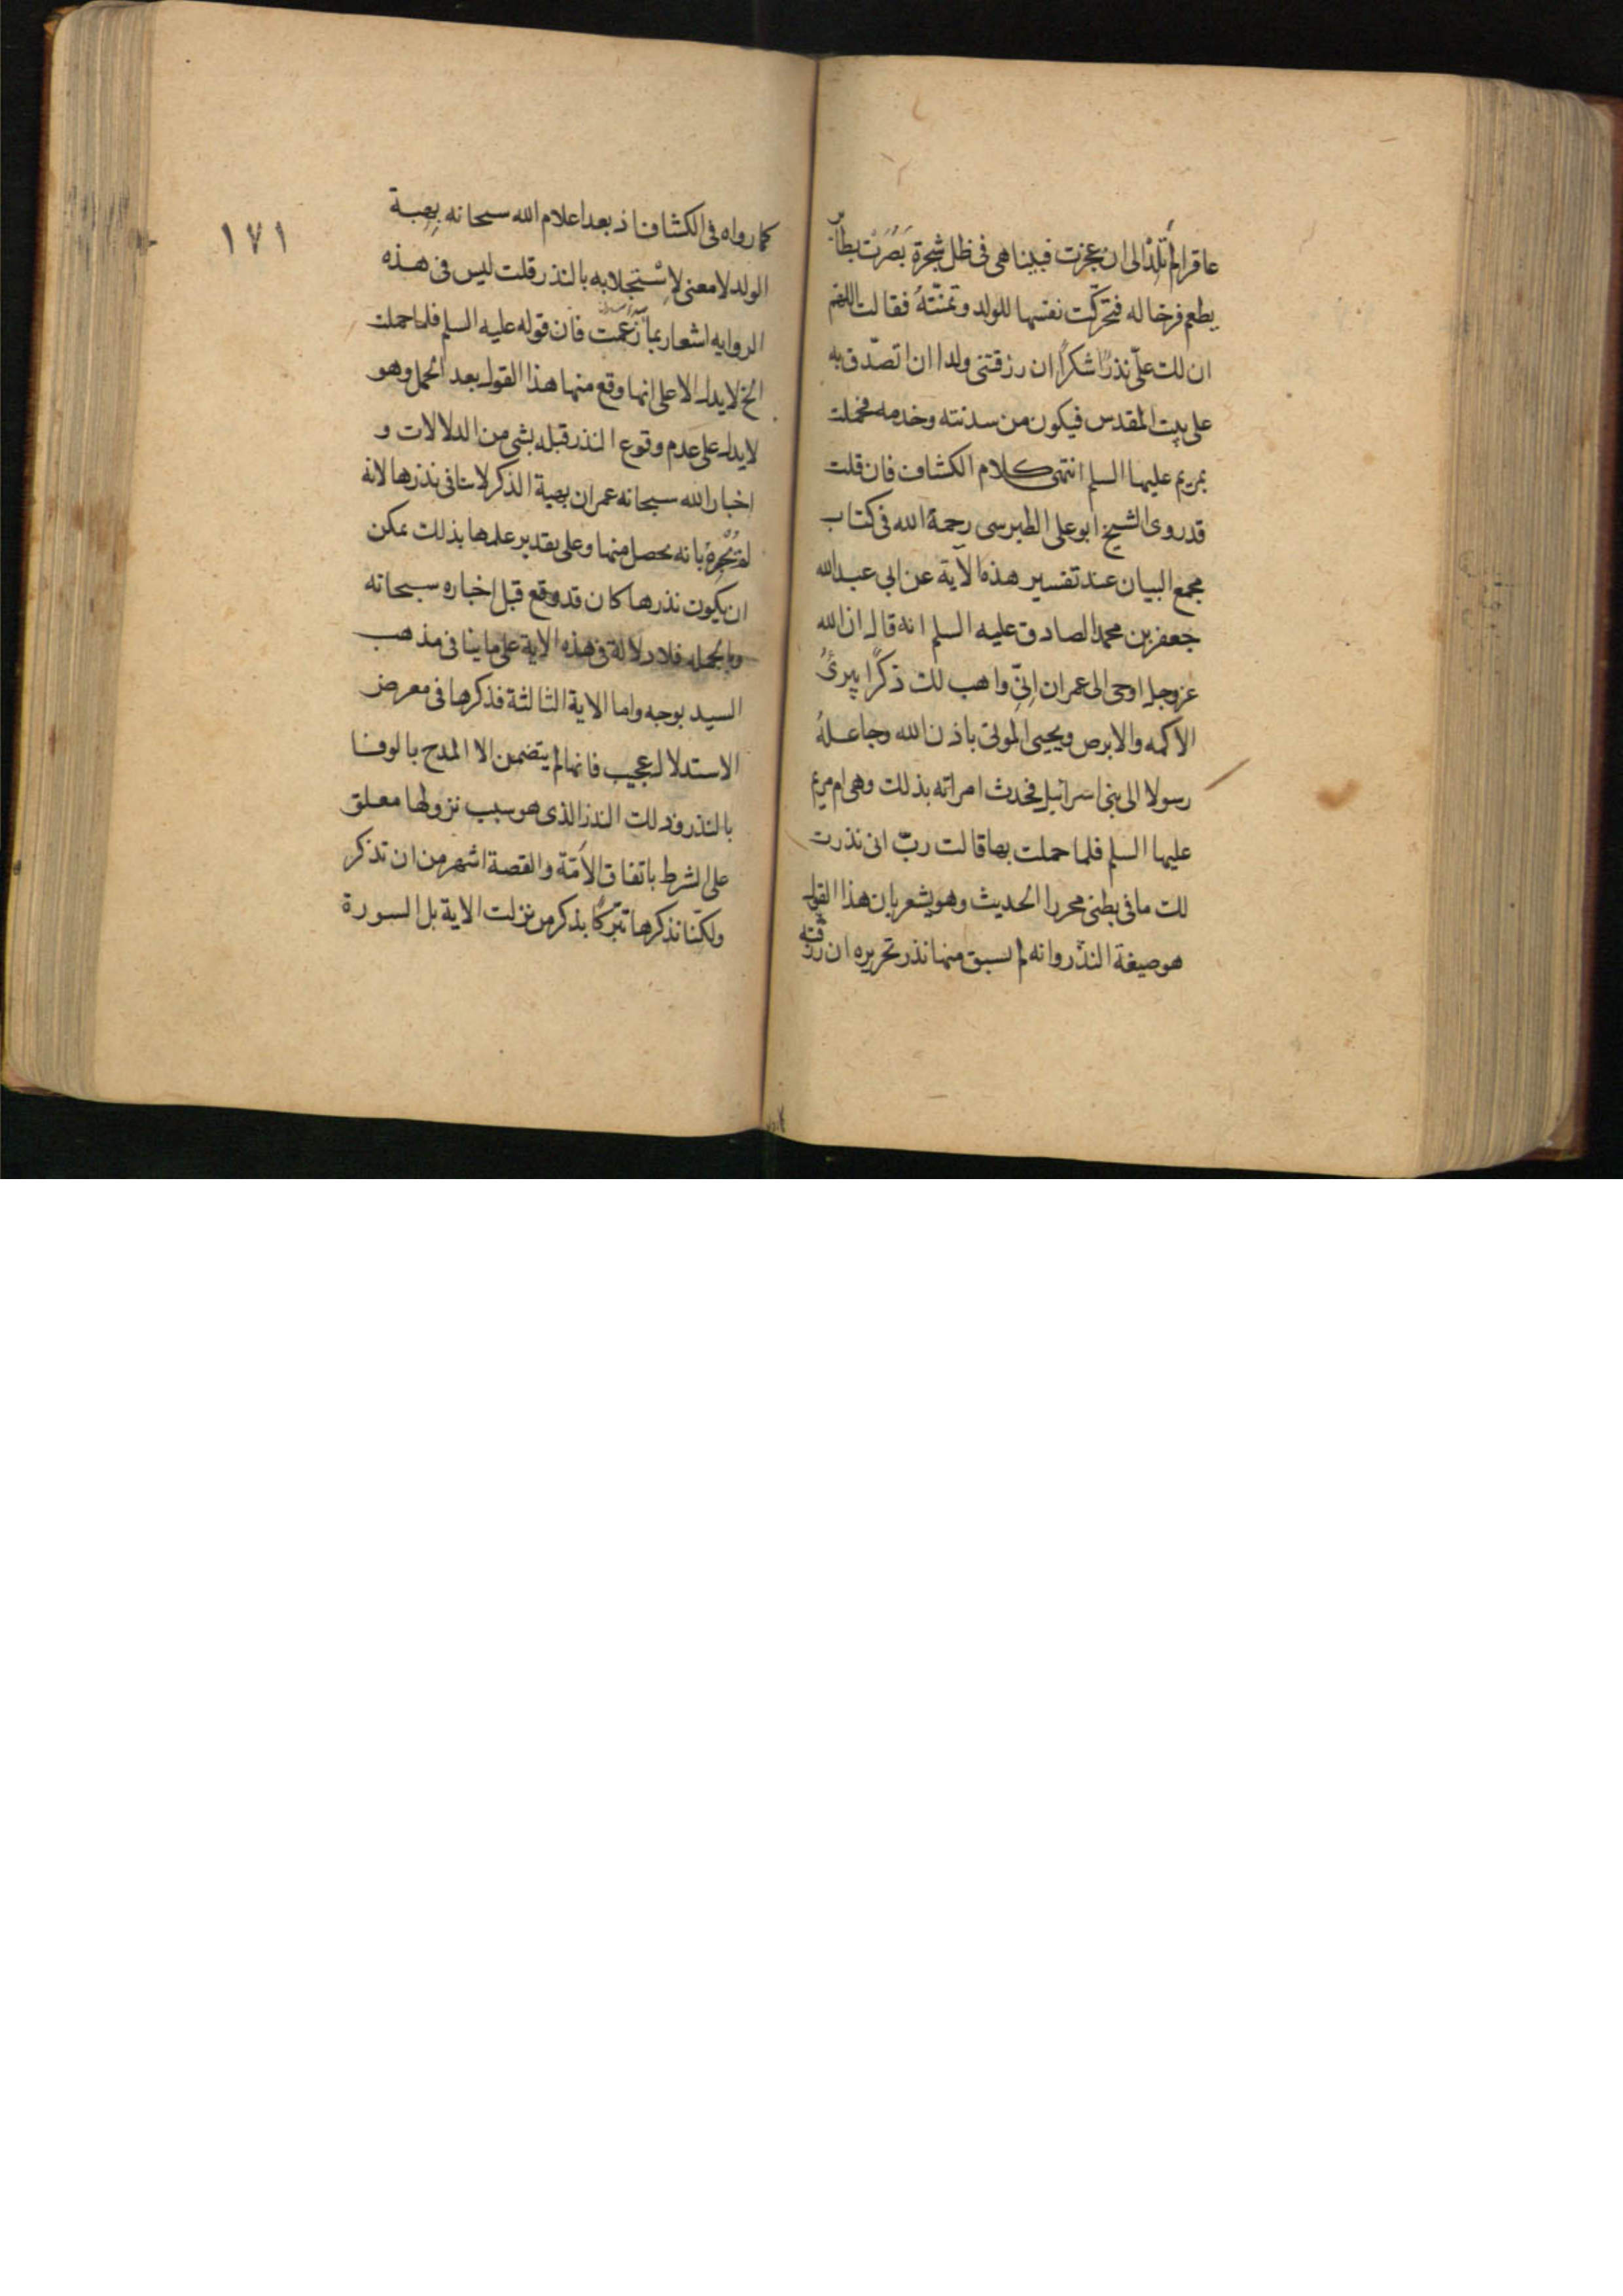 عاقرا لم تَلِدْ الى ان عجزت فبينا هى فى ظل شجرة بَصُرَتْ بطائر
يطعم فرخا له فتحركّت نفسها للولد وتمنّته فقالت اللهم
ان لك علىّ نذرًا شكرًا ان رزقتنى ولدا ان اتصدّق به
على بيت المقدس فيكون من سدنته وخدمه فحملت
بمريم عليها السلم انتهى كلام الكشاف فان قلت
قد روى الشيخ ابو على الطبرسى رحمة الله فى كتاب
مجمع البيان عند تفسير هذه الآية عن ابى عبد الله
جعفر بن محمد الصادق عليه السلم انه قال ان الله
عز وجل اوحى الى عمران اِنّى واهب لك ذكرًا يبرئُ
الاكمه والابرص ويحيى الموتى باذن الله وجاعلهُ
رسولا الى بنى اسرائيل فحدث امراته بذلك وهى ام مريم
عليها السلم فلما حملت بها قالت ربّ انى نذرت
لك ما فى بطنى محررا الحديث وهو يشعر بان هذا القول
هو صيغة النذر وانه لم يسبق منها نذر تحريره ان رزقته
١٧١
كما رواه فى الكشاف اذ بعد اعلام الله سبحانه بِهبة
الولد لا معنى لاِسْتجلابه بالنذر قلت ليس فى هذه
الروايه اشعار بما زعمت فان قوله عليه السلم فلما حملت
الخ لا يدل الا على انها وقع منها هذا القول بعد الحمل وهو
لا يدل على عدم وقوع النذر قبله بشى من الدلالات و
اخبار الله سبحانه عمران بهبة الذكر لا ينافى نذرها لانه
لم يُخْبِرهُ بانه يحصل منها وعلى تقدير علمها بذلك يمكن
ان يكون نذرها كان قد وقع قبل اخباره سبحانه
وبالجمله فلا دلالة فى هذه الاية على ما ينافى مذهب
السيد بوجه واما الاية الثالثة فذكرها فى معرض
الاستدلال عجيب فانها لم يتضمن الا المدح بالوفا
بالنذر وذلك النذر الذى هو سبب نزولها معلق
على الشرط باتفاق الاُمّة والقصة اشهر من ان تذكر
ولكنّا نذكرها تبرّكًا بذكر من نزلت الاية بل السورة